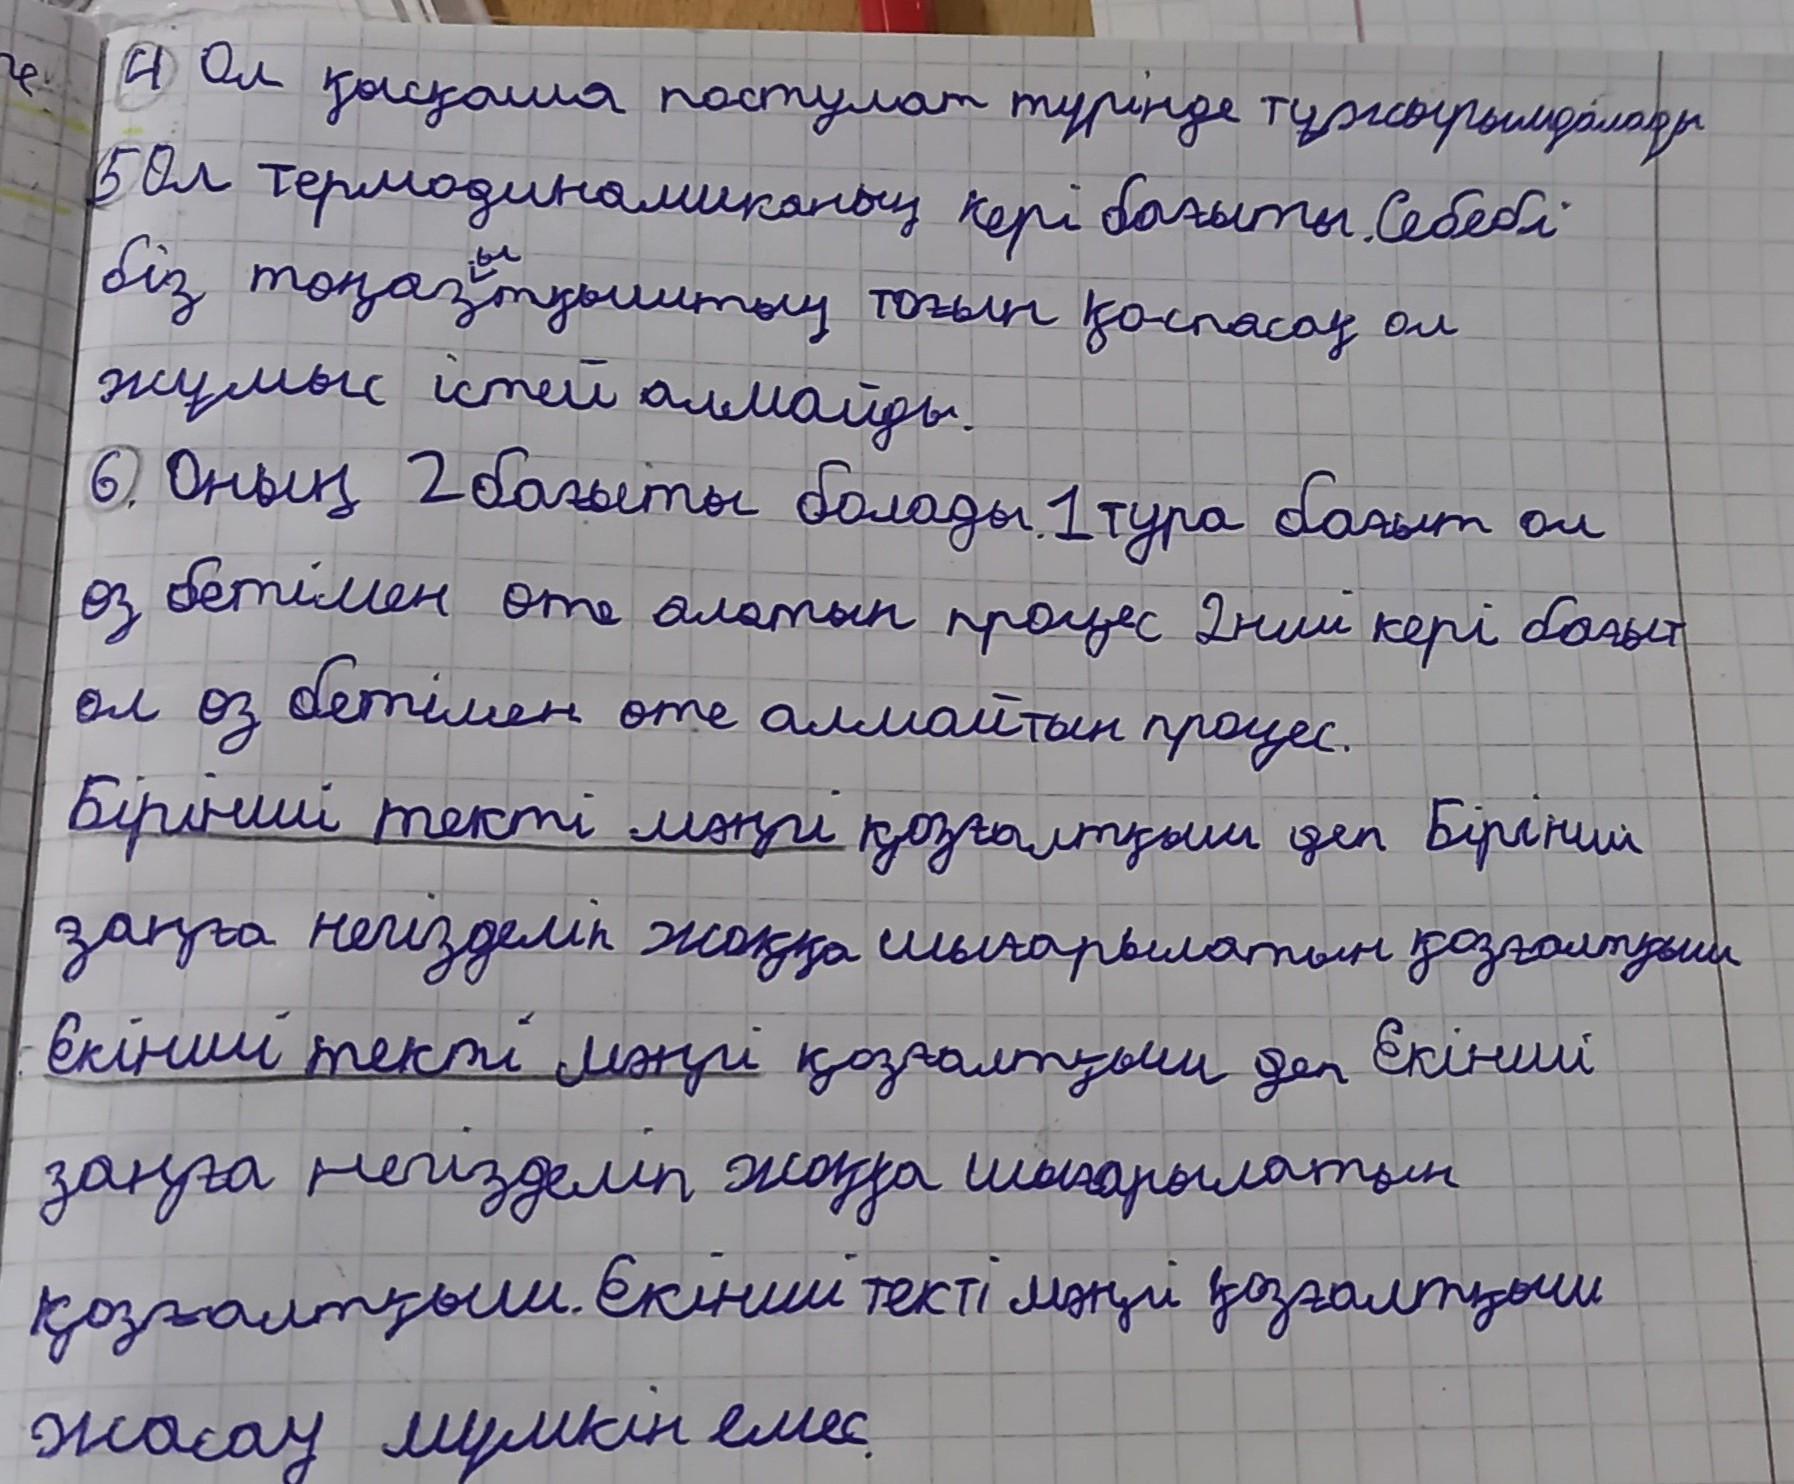 4) Ол қысқаша постулат түрінде тұжырымдалады
5) Ол термодинамиканың кері бағыты. Себебі
біз тоңазытқыштың тоғын қоспасақ ол
жұмыс істей алмайды.
6). Оның 2 бағыты болады. 1 тура бағыт ол
өз бетімен өте алатын процес 2нші кері бағыт
ол өз бетімен өте алмайтын процес.
Бірінші текті мәңгі қозғалтқыш деп Бірінші
заңға негізделіп жоққа шығарылатын қозғалтқыш
Екінші текті мәңгі қозғалтқыш деп Екінші
заңға негізделіп жоққа шығарылатын
қозғалтқыш. Екінші текті мәңгі қозғалтқыш
жасау мүмкін емес.